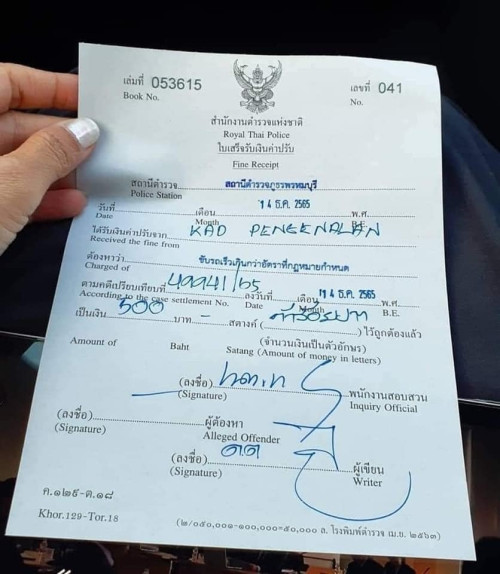 เล่มที่ 053615 เลขที่ 041
Book No. No.
สำนักงานตำรวจแห่งชาติ
Royal Thai Police
ใบเสร็จรับเงินค่าปรับ
Fine Receipt
สถานีตำรวจ สถานีตำรวจภูธรพรหมบุรี
Police Station
วันที่ 14 ธ.ค. 2565 เดือน พ.ศ.
Date Month B.E.
ได้รับเงินค่าปรับจาก KAD PENGENALAN
Received the fine from
ต้องหาว่า ขับรถเร็วเกินกว่าอัตราที่กฎหมายกำหนด
Charged of
ตามคดีเปรียบเทียบที่ 49941/65 ลงวันที่ 14 ธ.ค. 2565 เดือน พ.ศ.
According to the case settlement No. Date Month B.E.
เป็นเงิน 500 บาท - สตางค์ ( ห้าร้อยบาท ) ไว้ถูกต้องแล้ว
(จำนวนเงินเป็นตัวอักษร)
Amount of Baht Satang (Amount of money in letters)
(ลงชื่อ) พนักงานสอบสวน
(Signature) Inquiry Official
(ลงชื่อ) ผู้ต้องหา
(Signature) Alleged Offender
(ลงชื่อ) ด.ต. ผู้เขียน
(Signature) Writer
ค.๑๒๙-ต.๑๘
Khor.129-Tor.18
(๒/๐๕๐,๐๐๑-๑๐๐,๐๐๐=๕๐,๐๐๐ ล. โรงพิมพ์ตำรวจ เม.ย. ๒๕๖๓)